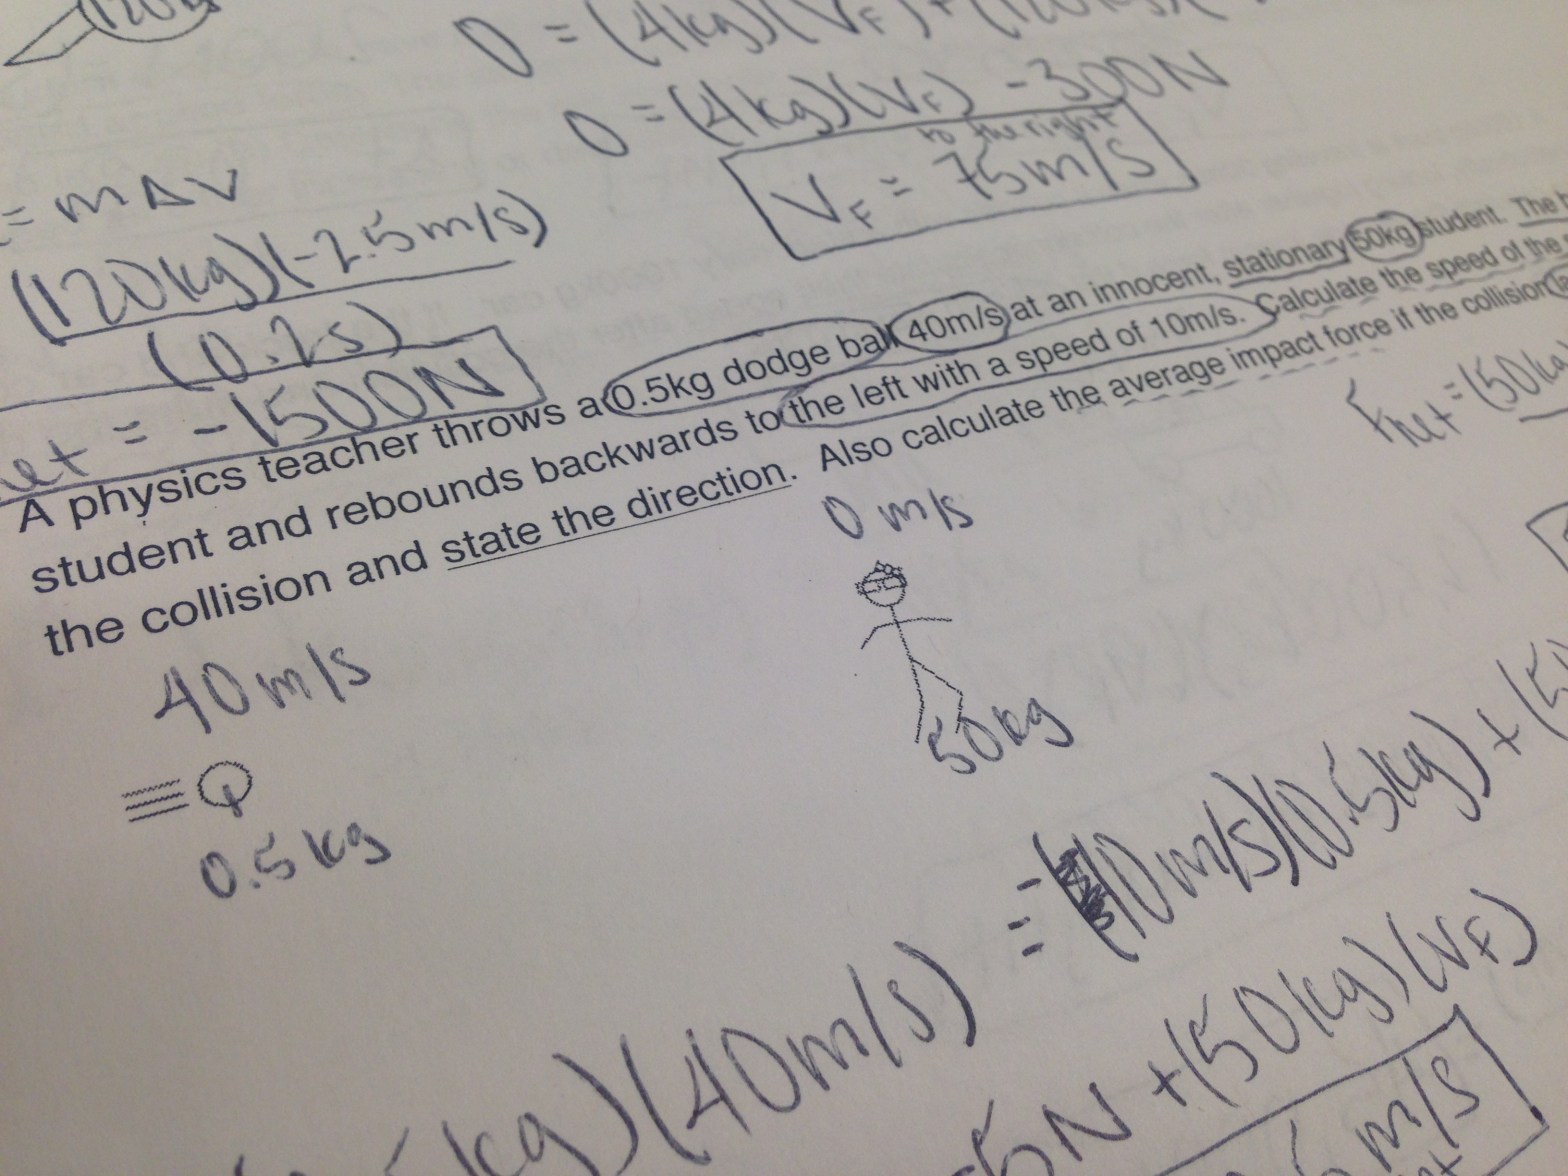 120kg
0 = (4kg)(VF) + (120kg)(
0 = (4kg)(VF) - 300N
to the right
VF = 75m/s
= m∆V
(120kg)(-2.5m/s)
(0.2s)
et = -1500N
A physics teacher throws a 0.5kg dodge ball 40m/s at an innocent, stationary 50kg student. The b
student and rebounds backwards to the left with a speed of 10m/s. Calculate the speed of the s
the collision and state the direction. Also calculate the average impact force if the collision la
Fnet = (50kg)
0 m/s
40m/s
50kg
0.5kg
kg)(40m/s) = (10m/s)(0.5kg) + (50
5N + (50kg)(VF)
m/s